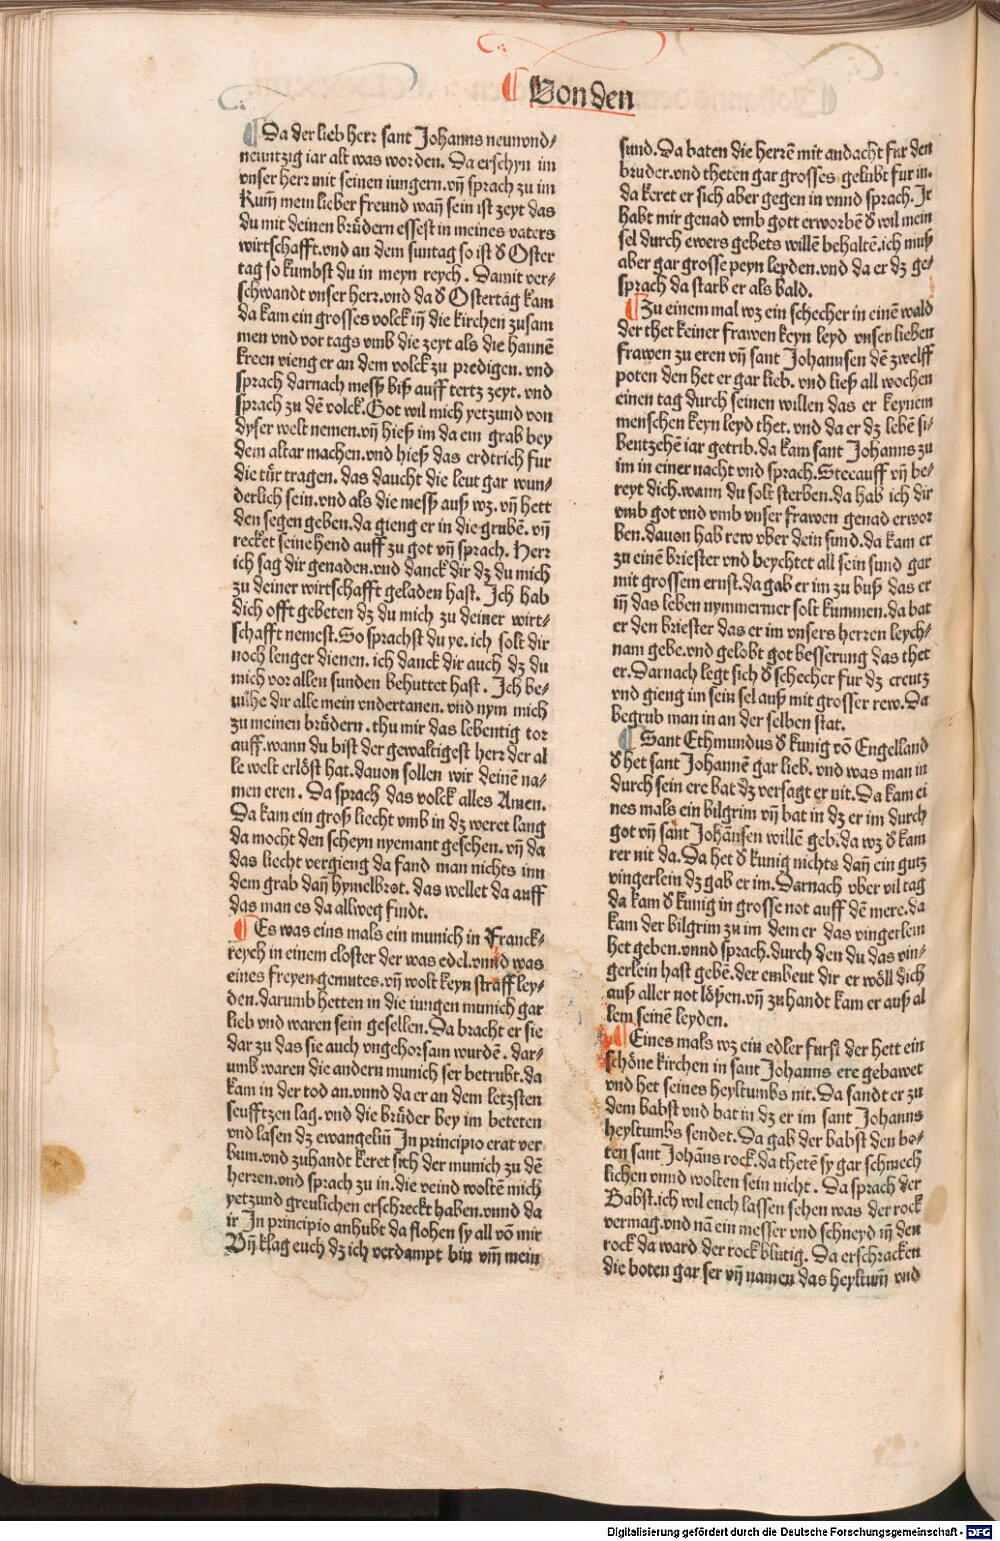 ¶ Von den
¶ Da der lieb herr sant Johanns neunvnd-
neuntzig iar alt was worden. Da erschyn im
vnser herr mit seinen iungern. vñ sprach zu im
Kum̄ mein lieber freund wañ sein ist zeyt das
du mit deinen brůdern essest in meines vaters
wirtschafft. vnd an dem suntag so ist d̓ Oster
tag so kumbst du in meyn reych. Damit ver-
schwandt vnser herr. vnd da d̓ Ostertag kam
da kam ein grosses volck iñ die kirchen zusam
men vnd vor tags vmb die zeyt als die hannē
kreen vieng er an dem volck zu predigen. vnd
sprach darnach mesß biß auff tertz zeyt. vnd
sprach zu dē volck. Got wil mich yetzund von
dyser welt nemen. vñ hieß im da ein grab bey
dem altar machen. vnd hieß das erdtrich fur
die tür tragen. das daucht die leut gar wun-
derlich sein. vnd als die mesß auß wz. vñ hett
den segen geben. da gieng er in die grubē. vñ
recket seine hend auff zu got vñ sprach. Herr
ich sag dir genaden. vnd danck dir dz du mich
zu deiner wirtschafft geladen hast. Ich hab
dich offt gebeten dz du mich zu deiner wirt-
schafft nemest. So sprachst du ye. ich solt dir
noch lenger dienen. ich danck dir auch dz du
mich vor allen sunden behuttet hast. Ich be-
uilhe dir alle mein vndertanen. vnd nym mich
zu meinen brůdern. thu mir das lebentig tor
auff. wann du bist der gewaltigest herr der al
le welt erlöst hat. dauon sollen wir deinē na-
men eren. Da sprach das volck alles Amen.
Da kam ein groß liecht vmb in dz weret lang
da mocht den scheyn nyemant gesehen. vñ da
das liecht vergieng da fand man nichts inn
dem grab dañ hymelbrot. das wellet da auff
das man es da allweg findt.
¶ Es was eins mals ein munich in Franck-
reych in einem closter der was edel. vnnd was
eines freyen gemutes. vñ wolt keyn straff ley-
den. darumb hetten in die iungen munich gar
lieb vnd waren sein gesellen. Da bracht er sie
dar zu das sie auch vngehorsam wurdē. dar-
umb waren die andern munich ser betrubt. da
kam in der tod an. vnnd da er an dem letzsten
seufftzen lag. vnd die brůder bey im beteten
vnd lasen dz ewangeliū In principio erat ver
bum. vnd zuhandt keret sich der munich zu dē
herren. vnd sprach zu in. die veind woltē mich
yetzund greulichen erschreckt haben. vnnd da
ir In principio anhubt da flohen sy all võ mir
Vñ klag euch dz ich verdampt bin vm̄ mein
sund. Da baten die herrē mit andacht fur den
bruder. vnd theten gar grosses gelubt fur in.
da keret er sich aber gegen in vnnd sprach. Ir
habt mir genad vmb gott erworbē d̓ wil mein
sel durch ewers gebets willē behaltē. ich muß
aber gar grosse peyn leyden. vnd da er dz ge-
sprach da starb er als bald.
¶ Zu einem mal wz ein schecher in einē wald
der thet keiner frawen keyn leyd vnser lieben
frawen zu eren vñ sant Johannsen dē zwelff
poten den het er gar lieb. vnd ließ all wochen
einen tag durch seinen willen das er keynem
menschen keyn leyd thet. vnd da er dz lebē si-
bentzehē iar getrib. da kam sant Johanns zu
im in einer nacht vnd sprach. Stee auff vñ be-
reyt dich. wann du solt sterben. da hab ich dir
vmb got vnd vmb vnser frawen genad erwor
ben. dauon hab rew vber dein sund. da kam er
zu einē briester vnd beychtet all sein sund gar
mit grossem ernst. da gab er im zu buß das er
iñ das leben nymmermer solt kummen. da bat
er den briester das er im vnsers herren leych-
nam gebe. vnd gelobt got besserung das thet
er. Darnach legt sich d̓ schecher fur dz creutz
vnd gieng im sein sel auß mit grosser rew. Da
begrub man in an der selben stat.
¶ Sant Ethmundus d̓ kunig võ Engelland
d̓ het sant Johannē gar lieb. vnd was man in
durch sein ere bat dz versagt er nit. Da kam ei
nes mals ein bilgrim vñ bat in dz er im durch
got vñ sant Johānsen willē geb. da wz d̓ kam
rer nit da. Da het d̓ kunig nichts dañ ein gutz
vingerlein dz gab er im. Darnach vber vil tag
da kam d̓ kunig in grosse not auff dē mere. da
kam der bilgrim zu im dem er das vingerlein
het geben. vnnd sprach. durch den du das vin-
gerlein hast gebē. der embeut dir er wöll dich
auß aller not lößen. vñ zuhandt kam er auß al
lem seinē leyden.
¶ Eines mals wz ein edler furst der hett ein
schöne kirchen in sant Johanns ere gebawet
vnd het seines heyltumbs nit. Da sandt er zu
dem babst vnd bat in dz er im sant Johanns
heyltumbs sendet. Da gab der babst den bo-
ten sant Johāns rock. da thetē sy gar schmech
lichen vnnd wolten sein nicht. Da sprach der
Babst. ich wil euch lassen sehen was der rock
vermag. vnd nā ein messer vnd schneyd iñ den
rock da ward der rock blutig. Da erschracken
die boten gar ser vñ namen das heyltum̄ vnd
Digitalisierung gefördert durch die Deutsche Forschungsgemeinschaft - DFG